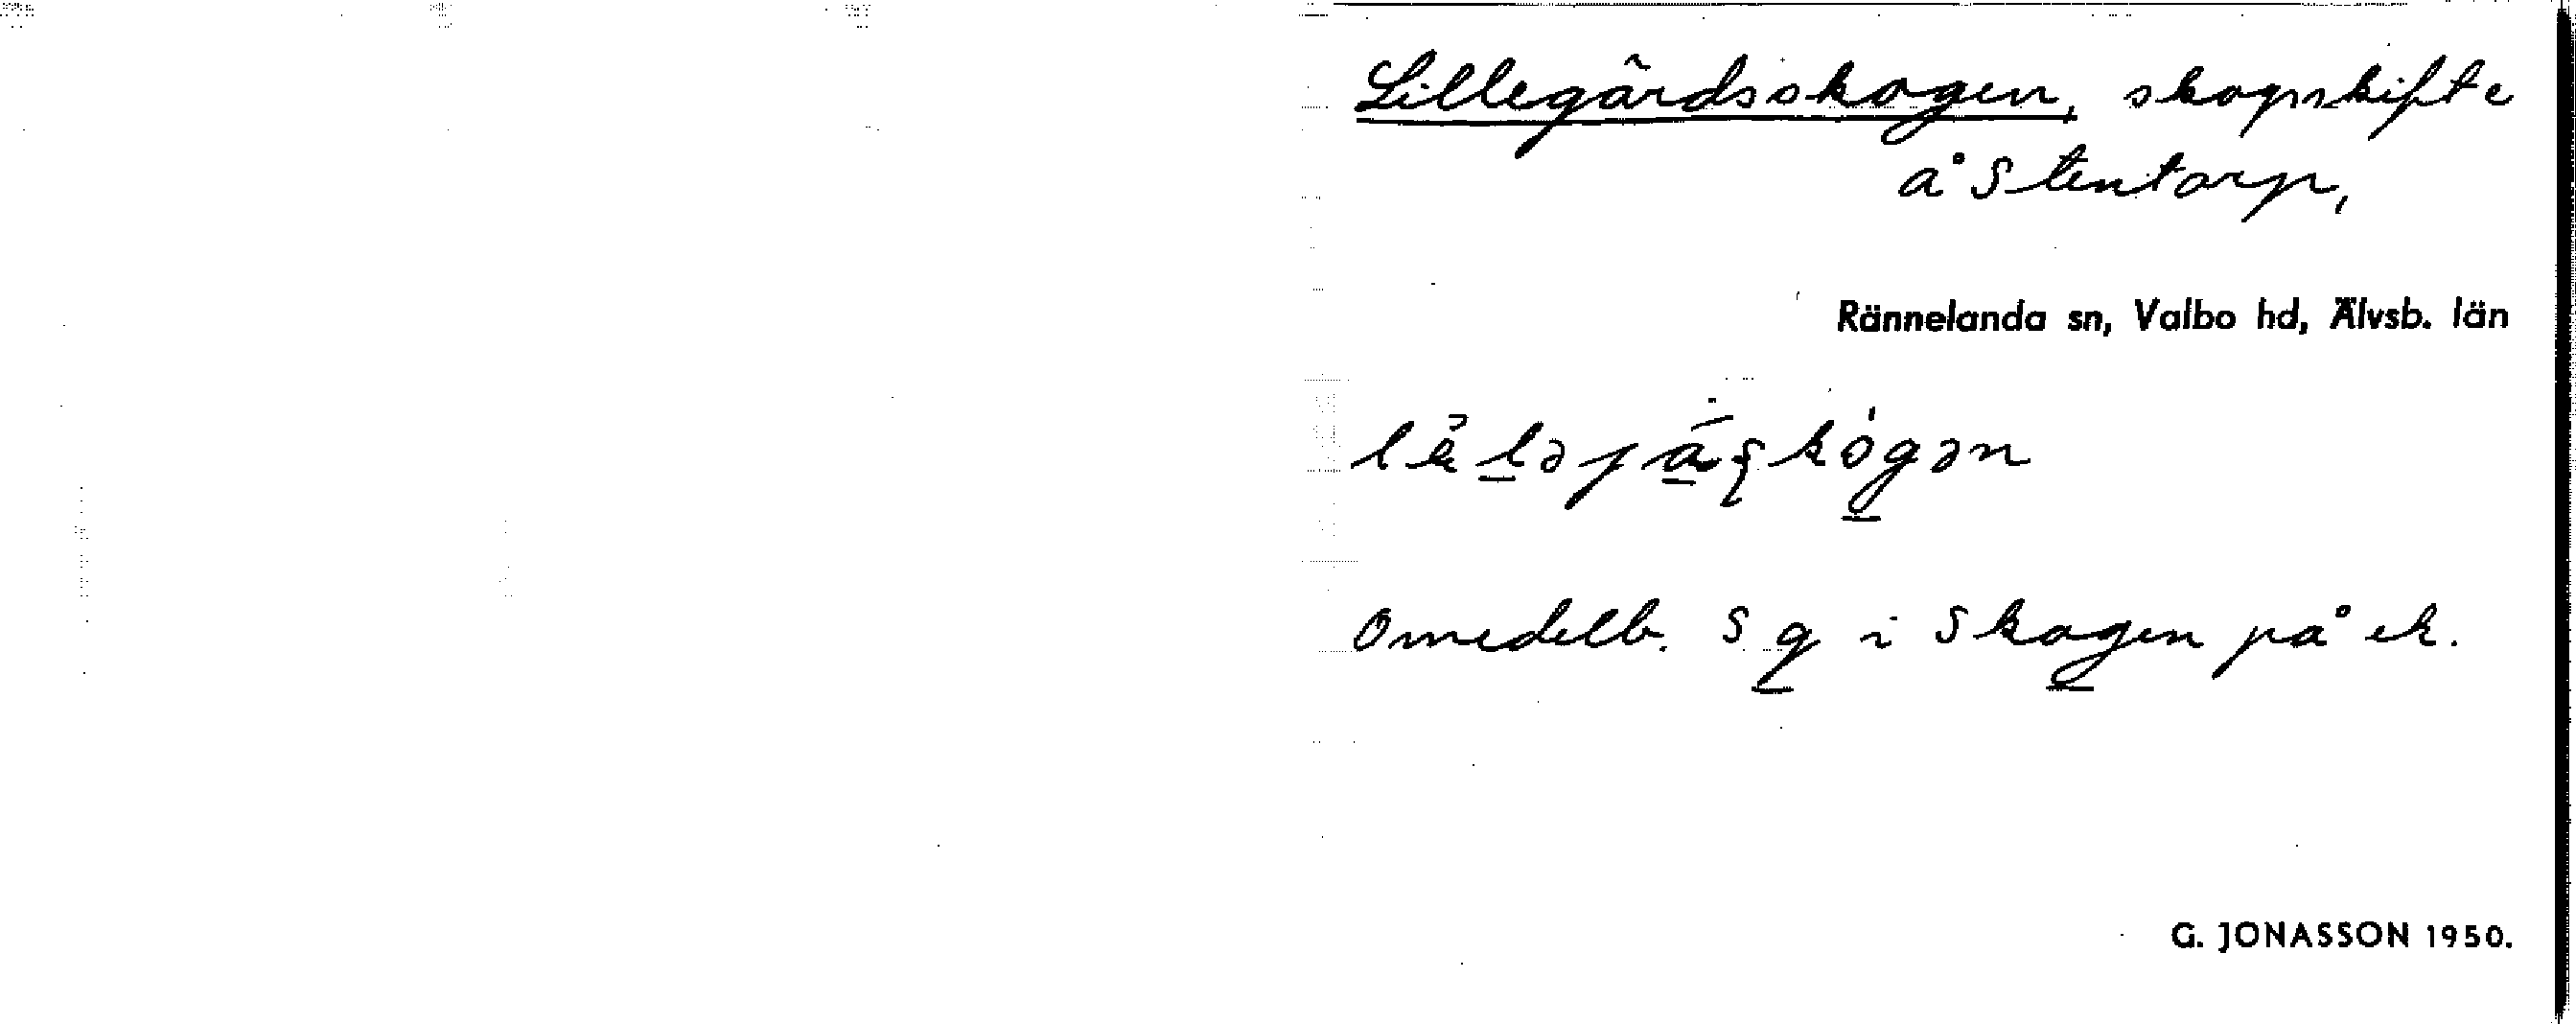 Lillegårdsskogen, skogsskifte
å Stentorp,
Rännelanda sn, Valbo hd, Älvsb. län
Omedelb. S g i Skogen på ek.
G. JONASSON 1950.